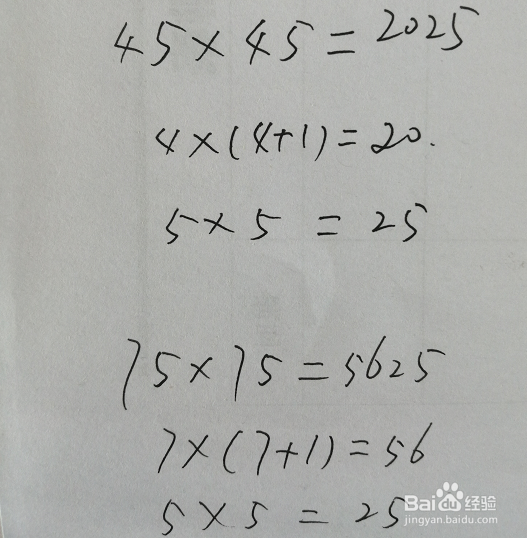 45×45=2025
4×(4+1)=20.
5×5=25
75×75=5625
7×(7+1)=56
5×5=25
Baidu经验
jingyan.baidu.com